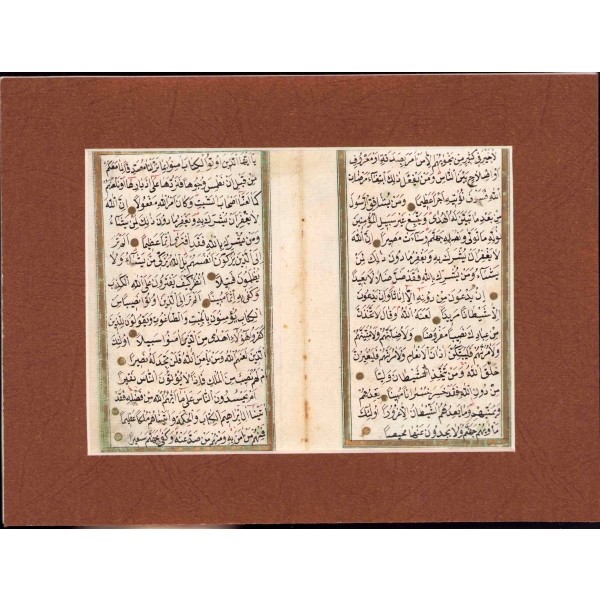 لَا خَيْرَ فِي كَثِيرٍ مِنْ نَجْوٰيهُمْ اِلَّا مَنْ اَمَرَ بِصَدَقَةٍ اَوْ مَعْرُوفٍ
اَوْ اِصْلَاحٍ بَيْنَ النَّاسِ وَمَنْ يَفْعَلْ ذٰلِكَ ابْتِغَاءَ مَرْضَاتِ
اللهِ فَسَوْفَ نُؤْتِيهِ اَجْرًا عَظِيمًا وَمَنْ يُشَاقِقِ الرَّسُولَ
مِنْ بَعْدِ مَا تَبَيَّنَ لَهُ الْهُدٰى وَيَتَّبِعْ غَيْرَ سَبِيلِ الْمُؤْمِنِينَ
نُوَلِّهِ مَا تَوَلّٰى وَنُصْلِهِ جَهَنَّمَ وَسَاءَتْ مَصِيرًا اِنَّ اللهَ
لَا يَغْفِرُ اَنْ يُشْرَكَ بِهِ وَيَغْفِرُ مَا دُونَ ذٰلِكَ لِمَنْ
يَشَاءُ وَمَنْ يُشْرِكْ بِاللهِ فَقَدْ ضَلَّ ضَلَالًا بَعِيدًا
اِنْ يَدْعُونَ مِنْ دُونِهِ اِلَّا اِنَاثًا وَاِنْ يَدْعُونَ
اِلَّا شَيْطَانًا مَرِيدًا لَعَنَهُ اللهُ وَقَالَ لَاَتَّخِذَنَّ
مِنْ عِبَادِكَ نَصِيبًا مَفْرُوضًا وَلَاُضِلَّنَّهُمْ وَلَاُمَنِّيَنَّهُمْ
وَلَاٰمُرَنَّهُمْ فَلَيُبَتِّكُنَّ اٰذَانَ الْاَنْعَامِ وَلَاٰمُرَنَّهُمْ فَلَيُغَيِّرُنَّ
خَلْقَ اللهِ وَمَنْ يَتَّخِذِ الشَّيْطَانَ وَلِيًّا
مِنْ دُونِ اللهِ فَقَدْ خَسِرَ خُسْرَانًا مُبِينًا يَعِدُهُمْ
وَيُمَنِّيهِمْ وَمَا يَعِدُهُمُ الشَّيْطَانُ اِلَّا غُرُورًا اُولٰئِكَ
مَاْوٰيهُمْ جَهَنَّمُ وَلَا يَجِدُونَ عَنْهَا مَحِيصًا
يَا اَيُّهَا الَّذِينَ اُوتُوا الْكِتَابَ اٰمِنُوا بِمَا نَزَّلْنَا مُصَدِّقًا لِمَا مَعَكُمْ
مِنْ قَبْلِ اَنْ نَطْمِسَ وُجُوهًا فَنَرُدَّهَا عَلٰى اَدْبَارِهَا اَوْ نَلْعَنَهُمْ
كَمَا لَعَنَّا اَصْحَابَ السَّبْتِ وَكَانَ اَمْرُ اللهِ مَفْعُولًا اِنَّ اللهَ
لَا يَغْفِرُ اَنْ يُشْرَكَ بِهِ وَيَغْفِرُ مَا دُونَ ذٰلِكَ لِمَنْ يَشَاءُ
وَمَنْ يُشْرِكْ بِاللهِ فَقَدِ افْتَرٰى اِثْمًا عَظِيمًا اَلَمْ تَرَ
اِلَى الَّذِينَ يُزَكُّونَ اَنْفُسَهُمْ بَلِ اللهُ يُزَكِّي مَنْ يَشَاءُ وَلَا
يُظْلَمُونَ فَتِيلًا اُنْظُرْ كَيْفَ يَفْتَرُونَ عَلَى اللهِ الْكَذِبَ
وَكَفٰى بِهِ اِثْمًا مُبِينًا اَلَمْ تَرَ اِلَى الَّذِينَ اُوتُوا نَصِيبًا مِنَ
الْكِتَابِ يُؤْمِنُونَ بِالْجِبْتِ وَالطَّاغُوتِ وَيَقُولُونَ لِلَّذِينَ
كَفَرُوا هٰؤُلَاءِ اَهْدٰى مِنَ الَّذِينَ اٰمَنُوا سَبِيلًا اُولٰئِكَ
الَّذِينَ لَعَنَهُمُ اللهُ وَمَنْ يَلْعَنِ اللهُ فَلَنْ تَجِدَ لَهُ نَصِيرًا
اَمْ لَهُمْ نَصِيبٌ مِنَ الْمُلْكِ فَاِذًا لَا يُؤْتُونَ النَّاسَ نَقِيرًا
اَمْ يَحْسُدُونَ النَّاسَ عَلٰى مَا اٰتٰيهُمُ اللهُ مِنْ فَضْلِهِ فَقَدْ
اٰتَيْنَا اٰلَ اِبْرَاهِيمَ الْكِتَابَ وَالْحِكْمَةَ وَاٰتَيْنَاهُمْ مُلْكًا عَظِيمًا
فَمِنْهُمْ مَنْ اٰمَنَ بِهِ وَمِنْهُمْ مَنْ صَدَّ عَنْهُ وَكَفٰى بِجَهَنَّمَ سَعِيرًا